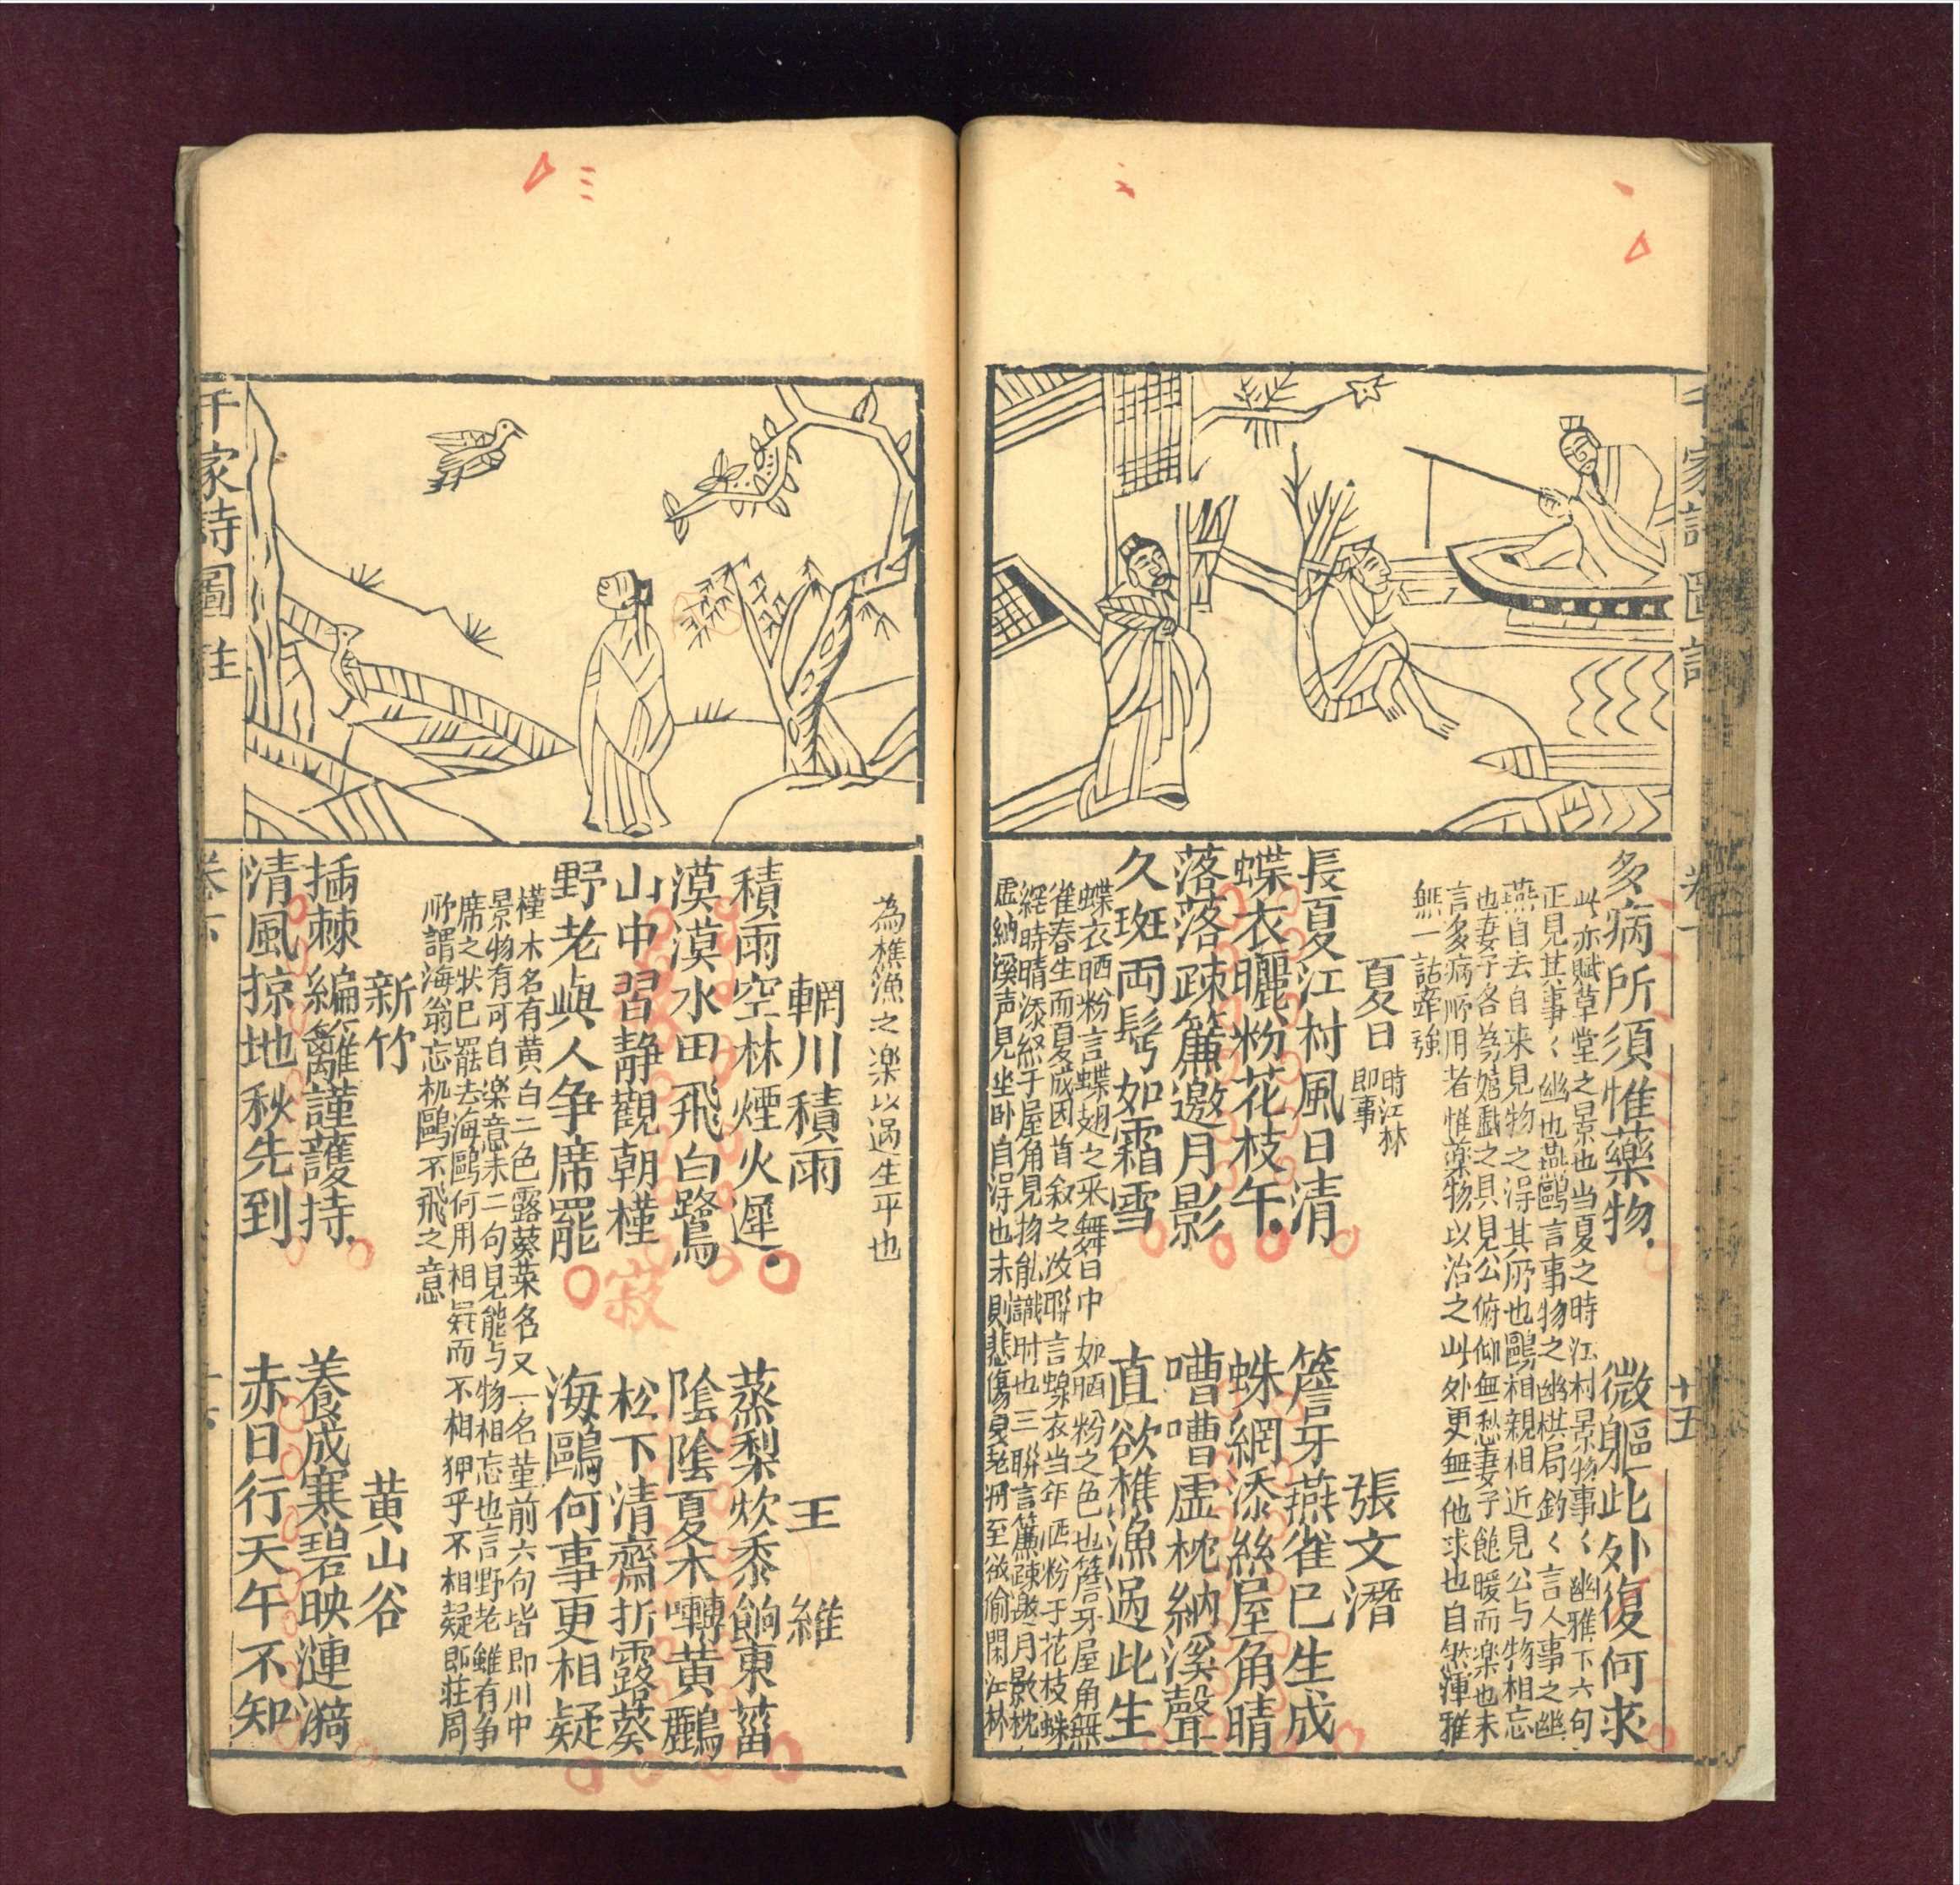 千家詩圖註
卷下
十五
多病所須惟藥物微軀此外復何求
此亦賦草堂之景也当夏之時江村景物事〻幽雅下六句
正見其事〻幽也燕鷗言事物之幽棋局釣〻言人事之幽
燕自去自来見物之得其所也鷗相親相近見公与物相忘
也妻子各為嬉戱之具見公俯仰無愁妻子飽暖而楽也末
言多病所用者惟藥物以治之此外更無一他求也自然渾雅
無一詰牵強
夏日
時江林
即事
張文潛
長夏江村風日清簷牙燕雀已生成
蝶衣曬粉花枝午蛛網添絲屋角晴
落落疎簾邀月影嘈嘈虛枕納溪聲
久斑両鬂如霜雪直欲樵漁過此生
蝶衣晒粉言蝶翅之采舞日中如晒粉之色也簷牙屋角無
雀春生而夏成因首叙之次聯言蝶衣当年晒粉于花枝蛛
經時晴添終于屋角見物能識时也三聯言簾疎邀月影枕
虚納溪声見坐卧自得也末則悲傷夏老將至欲偷閑江林
為樵漁之楽以過生平也
輞川積雨
王維
積雨空林煙火遲蒸梨炊黍餉東菑
漠漠水田飛白鷺陰陰夏木囀黄鸝
山中習靜觀朝槿松下清齋折露葵
寂
野老與人争席罷海鷗何事更相疑
槿木名有黄白二色露葵菜名又一名菫前六句皆即川中
景物有可自楽意末二句見能与物相忘也言野老雖有争
席之状已罷去海鷗何用相疑而不相狎乎不相疑即莊周
所謂海翁忘机鷗不飛之意
新竹
黄山谷
插棘編籬謹護持養成寒碧映漣漪
清風掠地秋先到赤日行天午不知
千家詩圖註
卷下